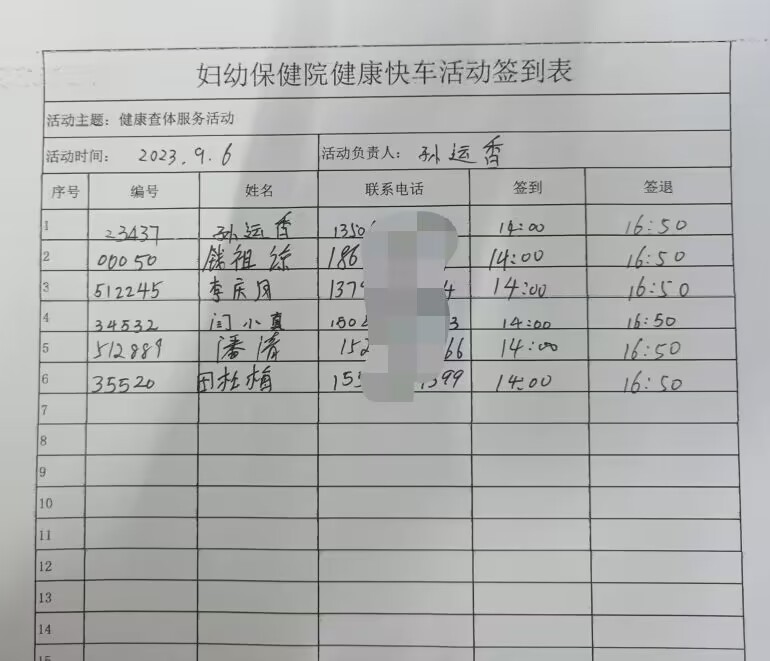 妇幼保健院健康快车活动签到表
活动主题：健康查体服务活动
活动时间： 2023.9.6 活动负责人： 孙运香
序号 编号 姓名 联系电话 签到 签退
1 23437 孙运香 1350 14:00 16:50
2 00050 钱祖 186 14:00 16:50
3 512245 李庆凤 137 4 14:00 16:50
4 34532 闫小真 150 3 14:00 16:50
5 512889 潘清 152 66 14:00 16:50
6 35520 田桂梅 15 399 14:00 16:50
7
8
9
10
11
12
13
14
15